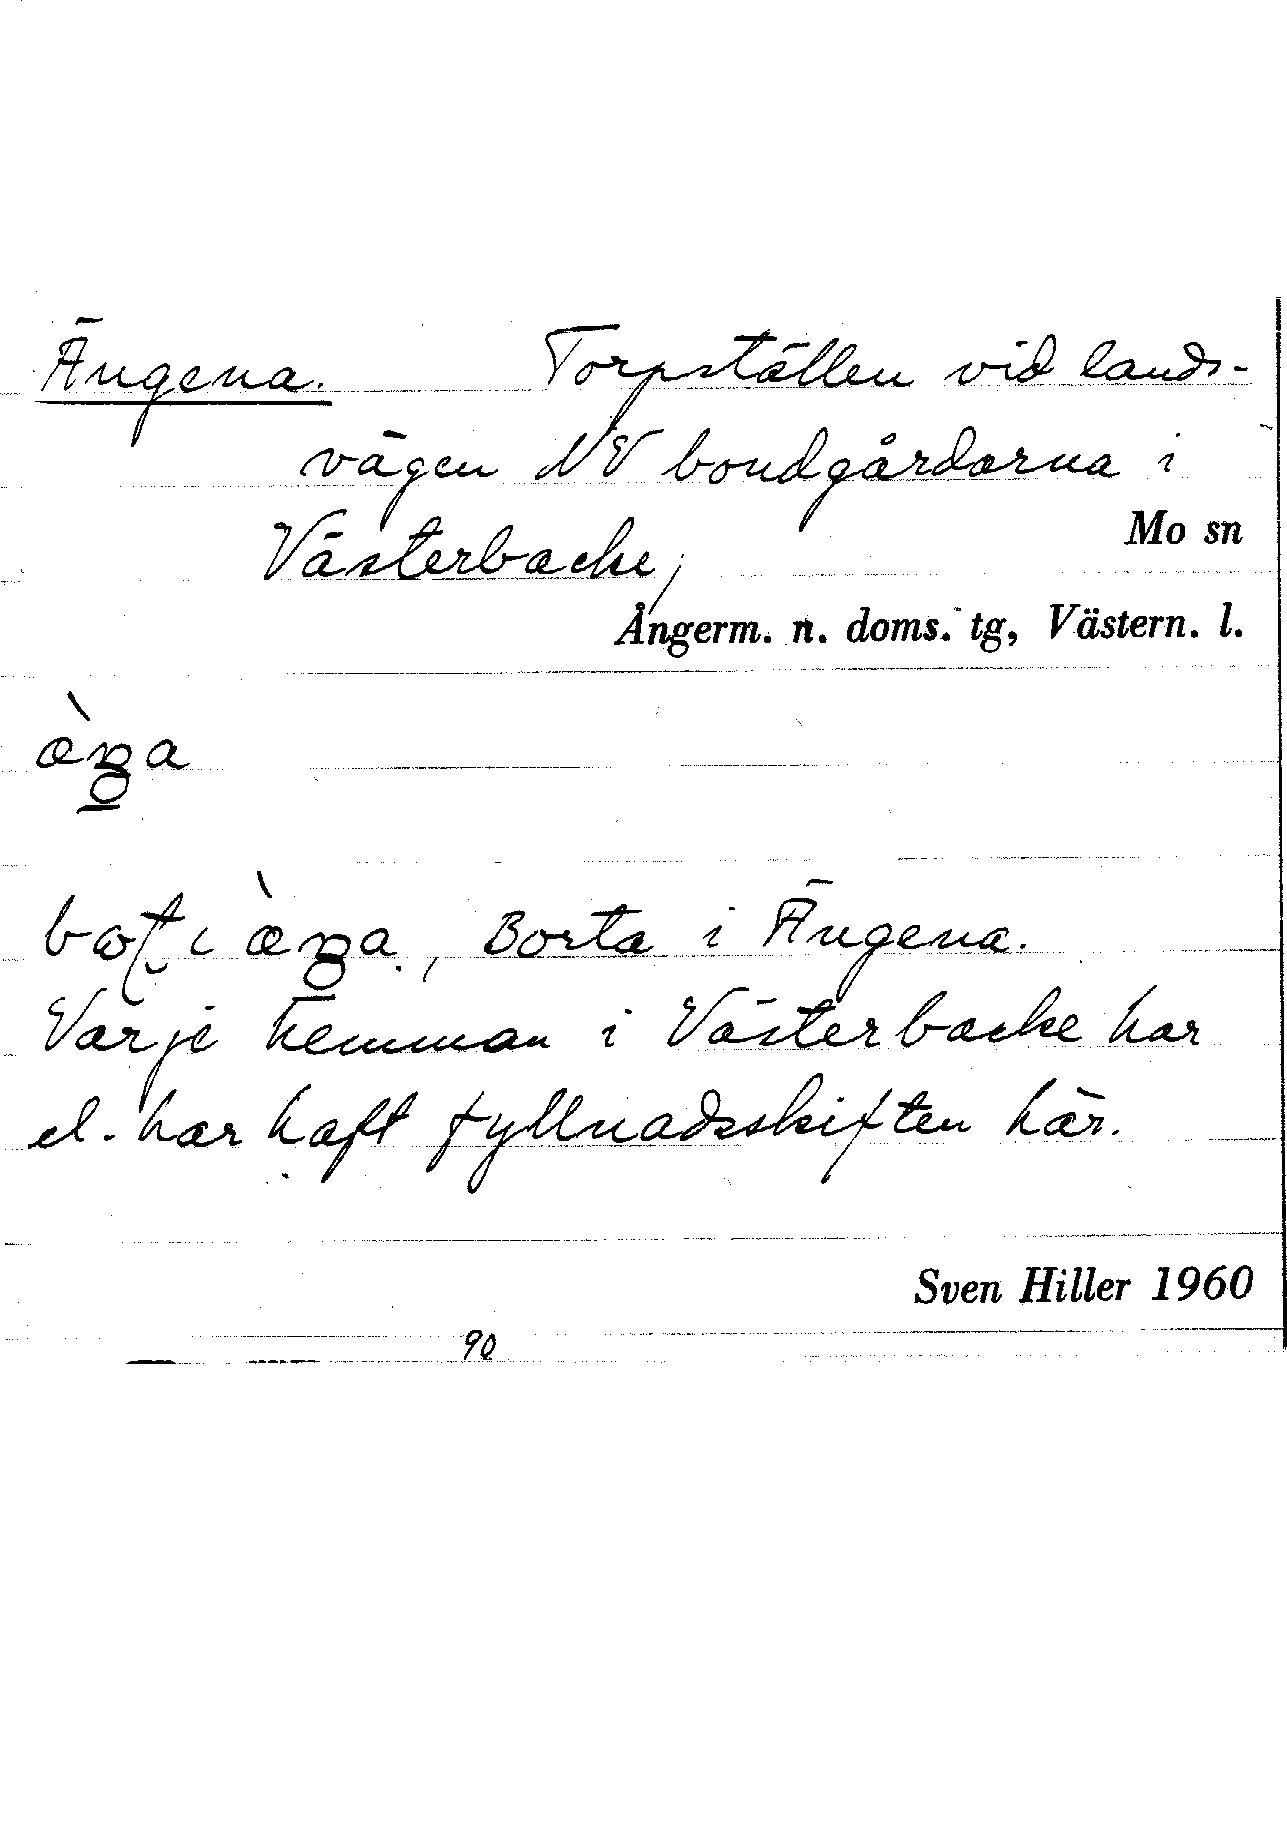 Ängena. Torpställen vid lands-
vägen NV bondgårdarna i
Västerbacke,
Mo sn
Ångerm. n. doms. tg, Västern. l.
Borta i Ängena.
Varje hemman i Västerbacke har
el. har haft fyllnadsskiften här.
Sven Hiller 1960
90